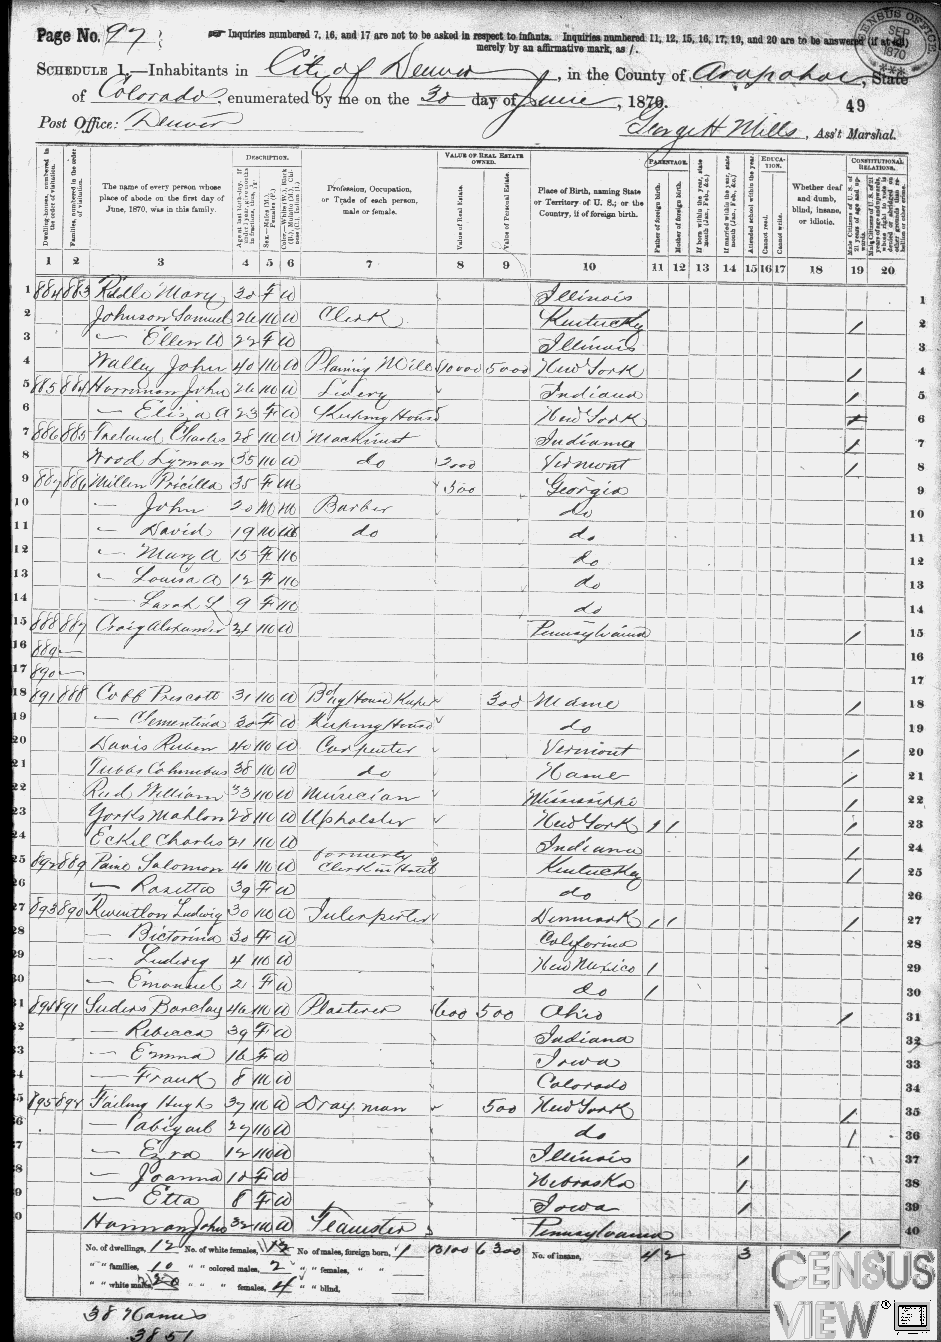 Page No. 97
☞ Inquiries numbered 7, 16, and 17 are not to be asked in respect to infants. Inquiries numbered 11, 12, 15, 16, 17, 19, and 20 are to be answered (if at all)
merely by an affirmative mark, as /.
CENSUS OFFICE SEP 1870
SCHEDULE 1.—Inhabitants in City of Denver, in the County of Arapahoe, State
of Colorado, enumerated by me on the 30 day of June, 1870.
49
Post Office: Denver
George H Mills, Ass't Marshal.
DESCRIPTION.
VALUE OF REAL ESTATE OWNED.
PARENTAGE.
EDUCATION.
CONSTITUTIONAL RELATIONS.
Dwelling-houses, numbered in the order of visitation.
Families, numbered in the order of visitation.
The name of every person whose place of abode on the first day of June, 1870, was in this family.
Profession, Occupation, or Trade of each person, male or female.
Value of Real Estate.
Value of Personal Estate.
Place of Birth, naming State or Territory of U. S.; or the Country, if of foreign birth.
Father of foreign birth.
Mother of foreign birth.
Attended school within the year.
Cannot read.
Cannot write.
Whether deaf and dumb, blind, insane, or idiotic.
1 2 3 4 5 6 7 8 9 10 11 12 13 14 15 16 17 18 19 20
1 884 883 Riddle Mary 30 F W Illinois 1
2 Johnson Samuel 26 M W Clerk Kentucky / 2
3 — Ellen W 22 F W Illinois 3
4 Walley John 40 M W Planing Mill 10000 5000 New York / 4
5 885 884 Harriman John 26 M W Livery Indiana / 5
6 — Eliza A 23 F W Keeping House New York 6
7 886 885 Ireland Charles 28 M W Machinist Indiana / 7
8 Wood Lyman 35 M W do 2000 Vermont / 8
9 887 886 Millen Pricilla 35 F M 500 Georgia 9
10 — John 20 M M Barber do 10
11 — David 19 M M do do 11
12 — Mary A 15 F M do 12
13 — Louisa A 12 F M do 13
14 — Sarah L 9 F M do 14
15 888 887 Craig Alexander M W Pennsylvania / 15
16 889 — 16
17 890 — 17
18 891 888 Cobb Prescott 31 M W Bdg House Keeper 300 Maine / 18
19 — Clementina 30 F W Keeping House do 19
20 Davis Ruben 40 M W Carpenter Vermont / 20
21 Tubbs Columbus 38 M W do Maine / 21
22 Reed William 33 M W Musician Mississippi / 22
23 Yorks Mahlon 28 M W Upholster New York / / / 23
24 Eckel Charles 21 M W Indiana / 24
25 892 889 Paine Solomon 40 M W formerly Clerk in Hotel Kentucky / 25
26 — Rosetta 39 F W do 26
27 893 890 Reventlow Ludwig 30 M W Denmark / / / 27
28 — Victorina 30 F W California 28
29 — Ludwig 4 M W New Mexico / 29
30 — Emanuel 2 F W do / 30
31 894 891 Suders Barclay 46 M W Plasterer 600 500 Ohio / 31
32 — Rebecca 39 F W Indiana 32
33 — Emma 16 F W Iowa 33
34 — Frank 8 M W Colorado 34
35 895 892 Failing Hugh 37 M W Drayman 500 New York / 35
36 — Abigail 27 M W do / 36
37 — Ezra 12 M W Illinois / 37
38 — Joanna 10 F W Nebraska / 38
39 — Etta 8 F W Iowa / 39
40 Hannan John 32 M W Teamster Pennsylvania / 40
No. of dwellings, 12 No. of white females, No. of males, foreign born, 1 13100 6300 No. of insane, 4 2 3
" " families, 10 " " colored males, 2 " " females, " "
" " white males, 20 " " " females, 4 " " blind,
38 Names
3851
CENSUS
VIEW®